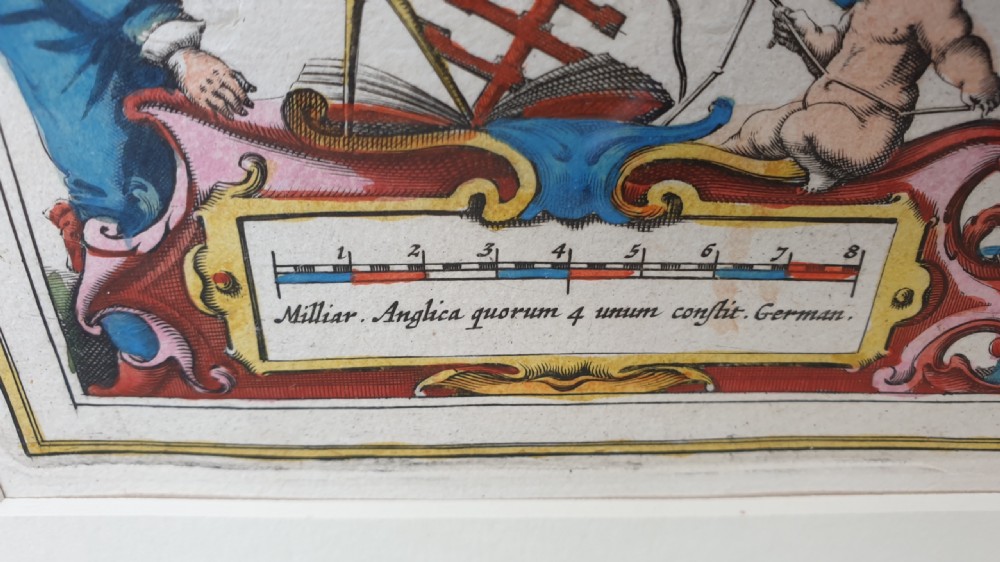 1 2 3 4 5 6 7 8
Milliar. Anglica quorum 4 unum conſtit. German.